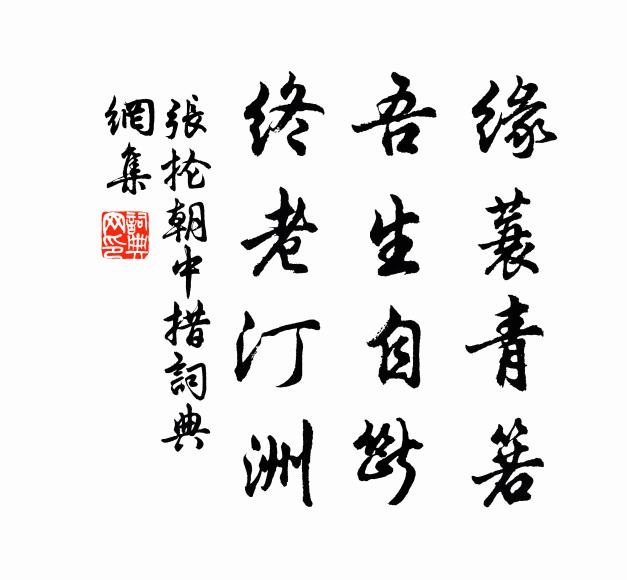 緣蓑青箬
吾生自斷
終老汀洲
張掄朝中措詞典
網集
詞典
网印